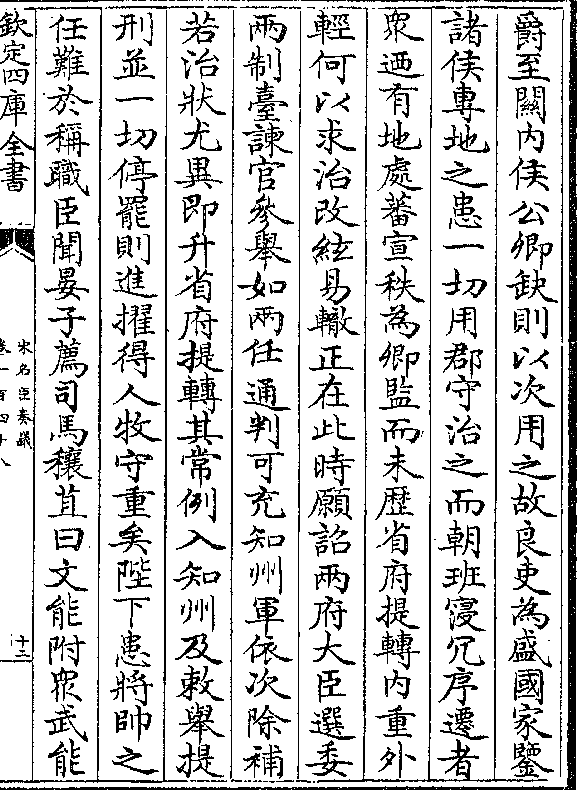 爵至關内侯公卿缺則以次用之故良吏為盛國家鑒
諸侯專地之患一切用郡守治之而朝班寖冗序遷者
衆廼有地處蕃宣秩為卿監而未歴省府提轉内重外
輕何以求治改絃易轍正在此時願詔兩府大臣選委
兩制臺諫官叅舉如兩任通判可充知州軍依次除補
若治狀尤異即升省府提轉其常例入知州及敕舉提
刑並一切停罷則進擢得人牧守重矣陛下患將帥之
任難於稱職臣聞晏子薦司馬穰苴曰文能附衆武能
欽定四庫全書
宋名臣奏議
卷一百四十八
十三